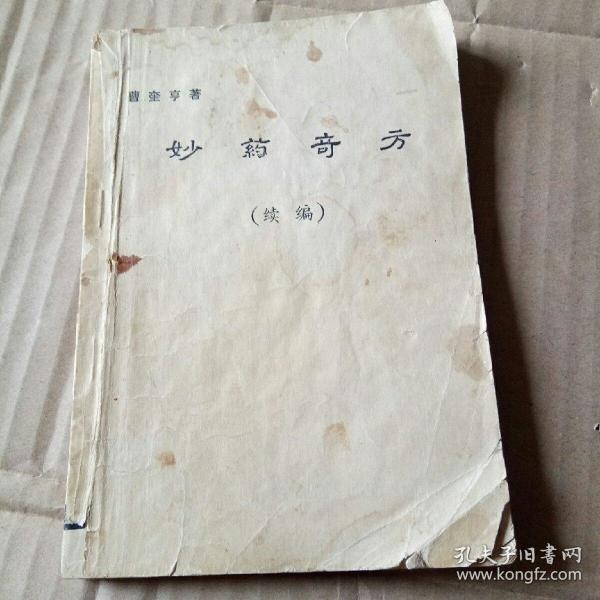 曹奎亨著
妙药奇方
(续编)
孔夫子旧书网
www.kongfz.com